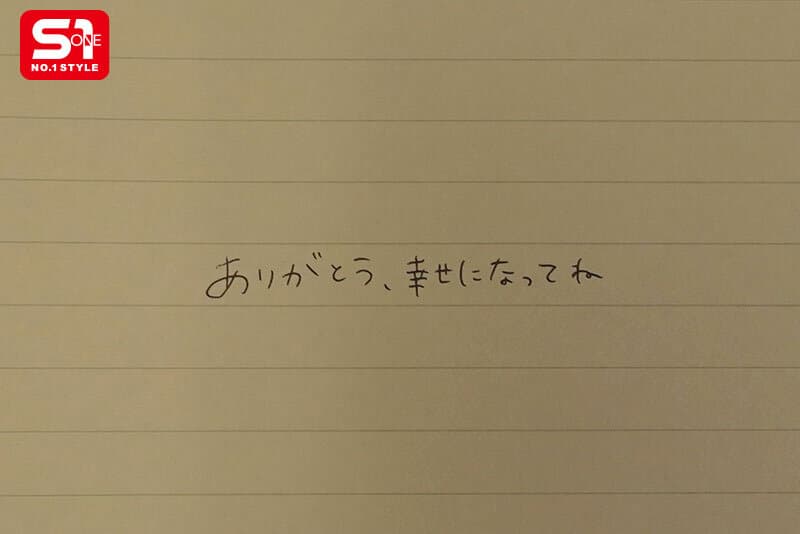 S1 ONE
NO.1 STYLE
ありがとう、幸せになってね